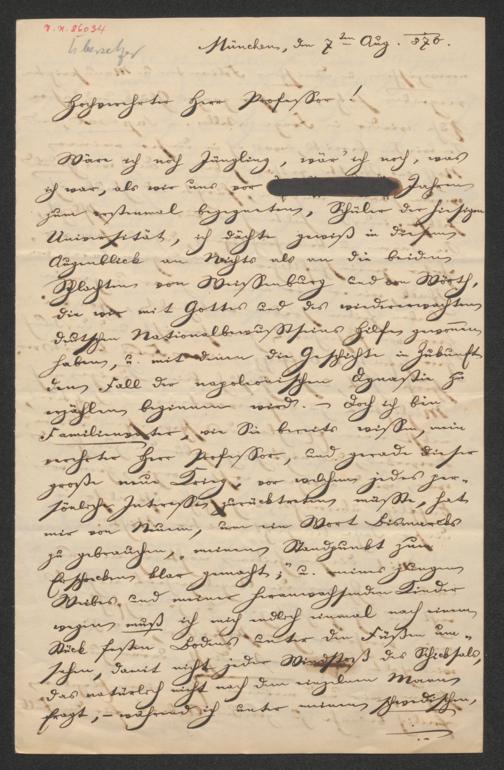 r. x. 86034
Übersetzer
München, den 7ten Aug. 870.
Hochverehrter Herr Professor!
Wäre ich noch Jüngling, wär' ich noch, was
ich war, als wir uns vor Jahren
zum erstenmal begegneten, Schüler der hiesigen
Universität, ich dächte gewiß in diesem
Augenblick an Nichts als an die beiden
Schlachten von Weissenburg und von Wörth,
die wir mit Gottes und des wiedererwachten
deutschen Nationalbewußtseins Hilfe gewonnen
haben, u. mit denen die Geschichte in Zukunft
den Fall der napoleonischen Dynastie zu
erzählen beginnen wird. – Doch ich bin
Familienvater, wie Sie bereits wissen, mein
verehrter Herr Professor, und gerade dieser
große neue Krieg, vor welchem jedes per-
sönliche Interesse zurücktreten müßte, hat
mir von Neuem, um ein Wort Bismarcks
zu gebrauchen, „meinen Standpunkt zum
Erschrecken klar gemacht;" u. meines jungen
Weibes und meiner heranwachsenden Kinder
wegen muß ich mich endlich einmal nach einem
Stück festen Bodens unter den Füßen um-
sehen, damit nicht jeder Windstoß des Schicksals,
das natürlich nicht nach dem einzelnen Manne
fragt, – während ich unter meinen schwedischen,